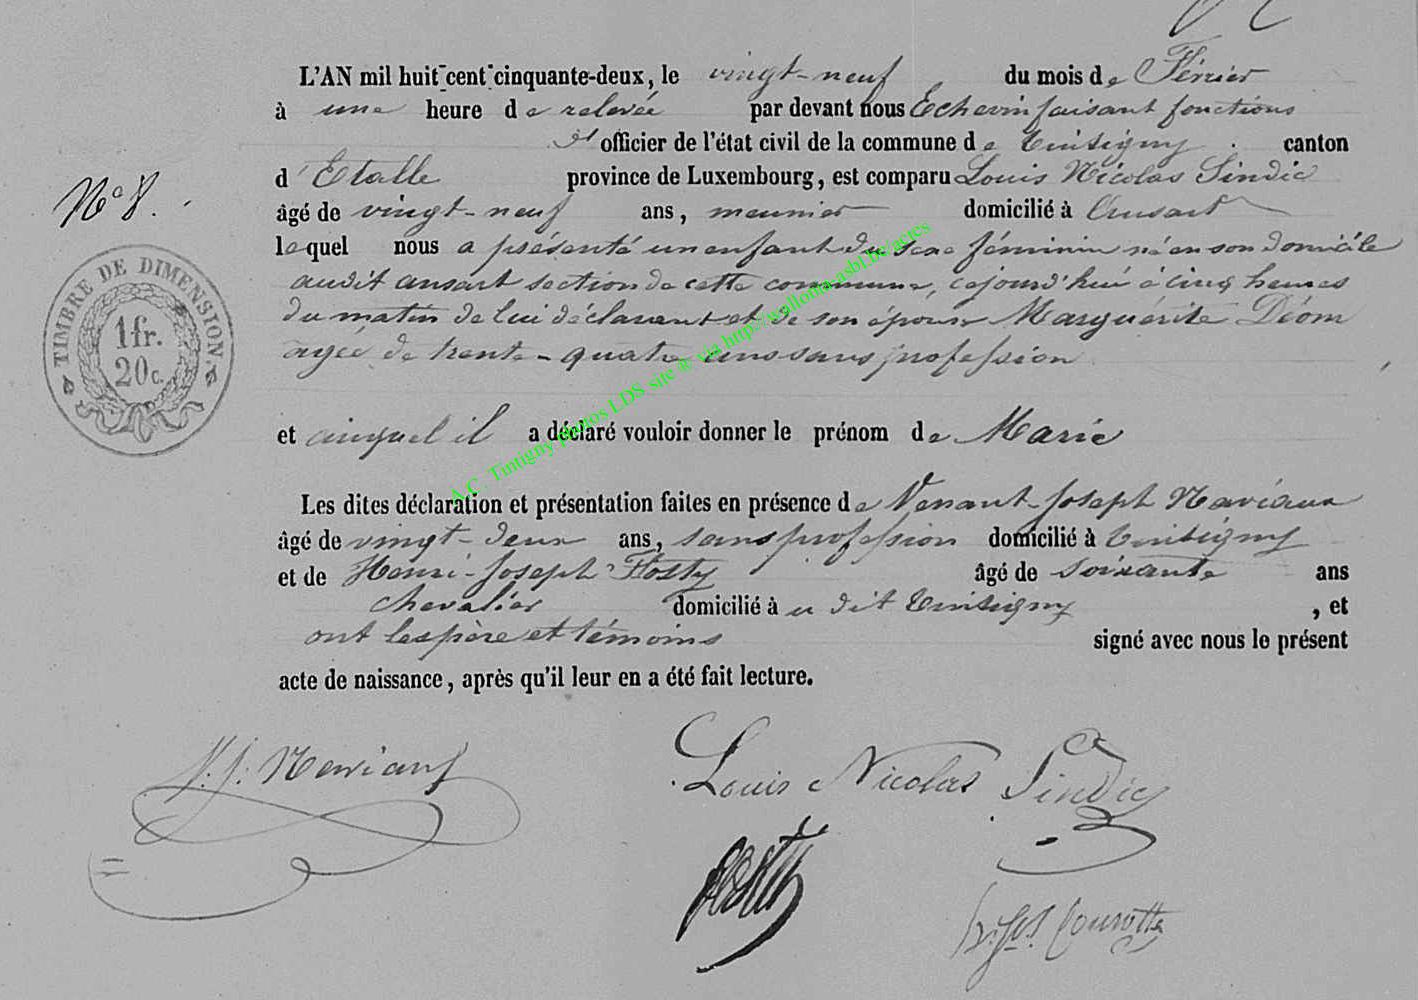 L'AN mil huit cent cinquante-deux, le vingt-neuf du mois de Février
à une heure de relevée par devant nous Echevin faisant fonctions
d'officier de l'état civil de la commune de Tintigny canton
d'Etalle province de Luxembourg, est comparu Louis Nicolas Sindic
N° 8.
âgé de vingt-neuf ans, meunier domicilié à Ansart
lequel nous a présenté un enfant du sexe féminin né en son domicile
audit ansart section de cette commune, cejourd'hui à cinq heures
du matin de lui déclarant et de son épouse Marguérite Déom
agée de trente-quatre ans sans profession
et auquel il a déclaré vouloir donner le prénom de Marie
Les dites déclaration et présentation faites en présence de Venant-Joseph Naviaux
âgé de vingt-deux ans, sans profession domicilié à Tintigny
et de Henri-Joseph Flosty âgé de soixante ans
chevalier domicilié à u dit Tintigny, et
ont les père et témoins signé avec nous le présent
acte de naissance, après qu'il leur en a été fait lecture.
TIMBRE DE DIMENSION.
1 fr.
20 c.
A.C. Tintigny photos LDS site ® via http://wallonia-asbl.be/actes
V. J. Naviaux
Louis Nicolas Sindic